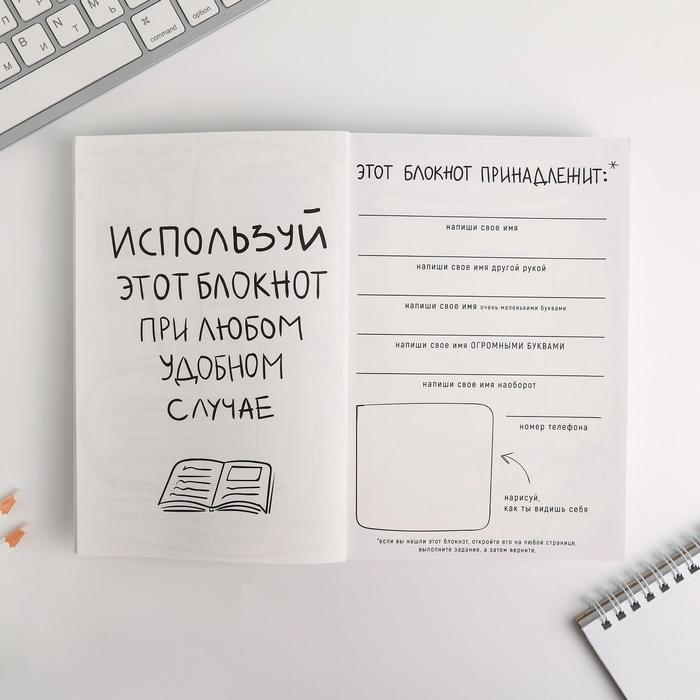 В И Т
М
N
⌘
command
option
ИСПОЛЬЗУЙ
ЭТОТ БЛОКНОТ
ПРИ ЛЮБОМ
УДОБНОМ
СЛУЧАЕ
ЭТОТ БЛОКНОТ ПРИНАДЛЕЖИТ:*
напиши свое имя
напиши свое имя другой рукой
напиши свое имя очень маленькими буквами
напиши свое имя ОГРОМНЫМИ БУКВАМИ
напиши свое имя наоборот
номер телефона
нарисуй,
как ты видишь себя
*если вы нашли этот блокнот, откройте его на любой странице,
выполните задание, а затем верните.